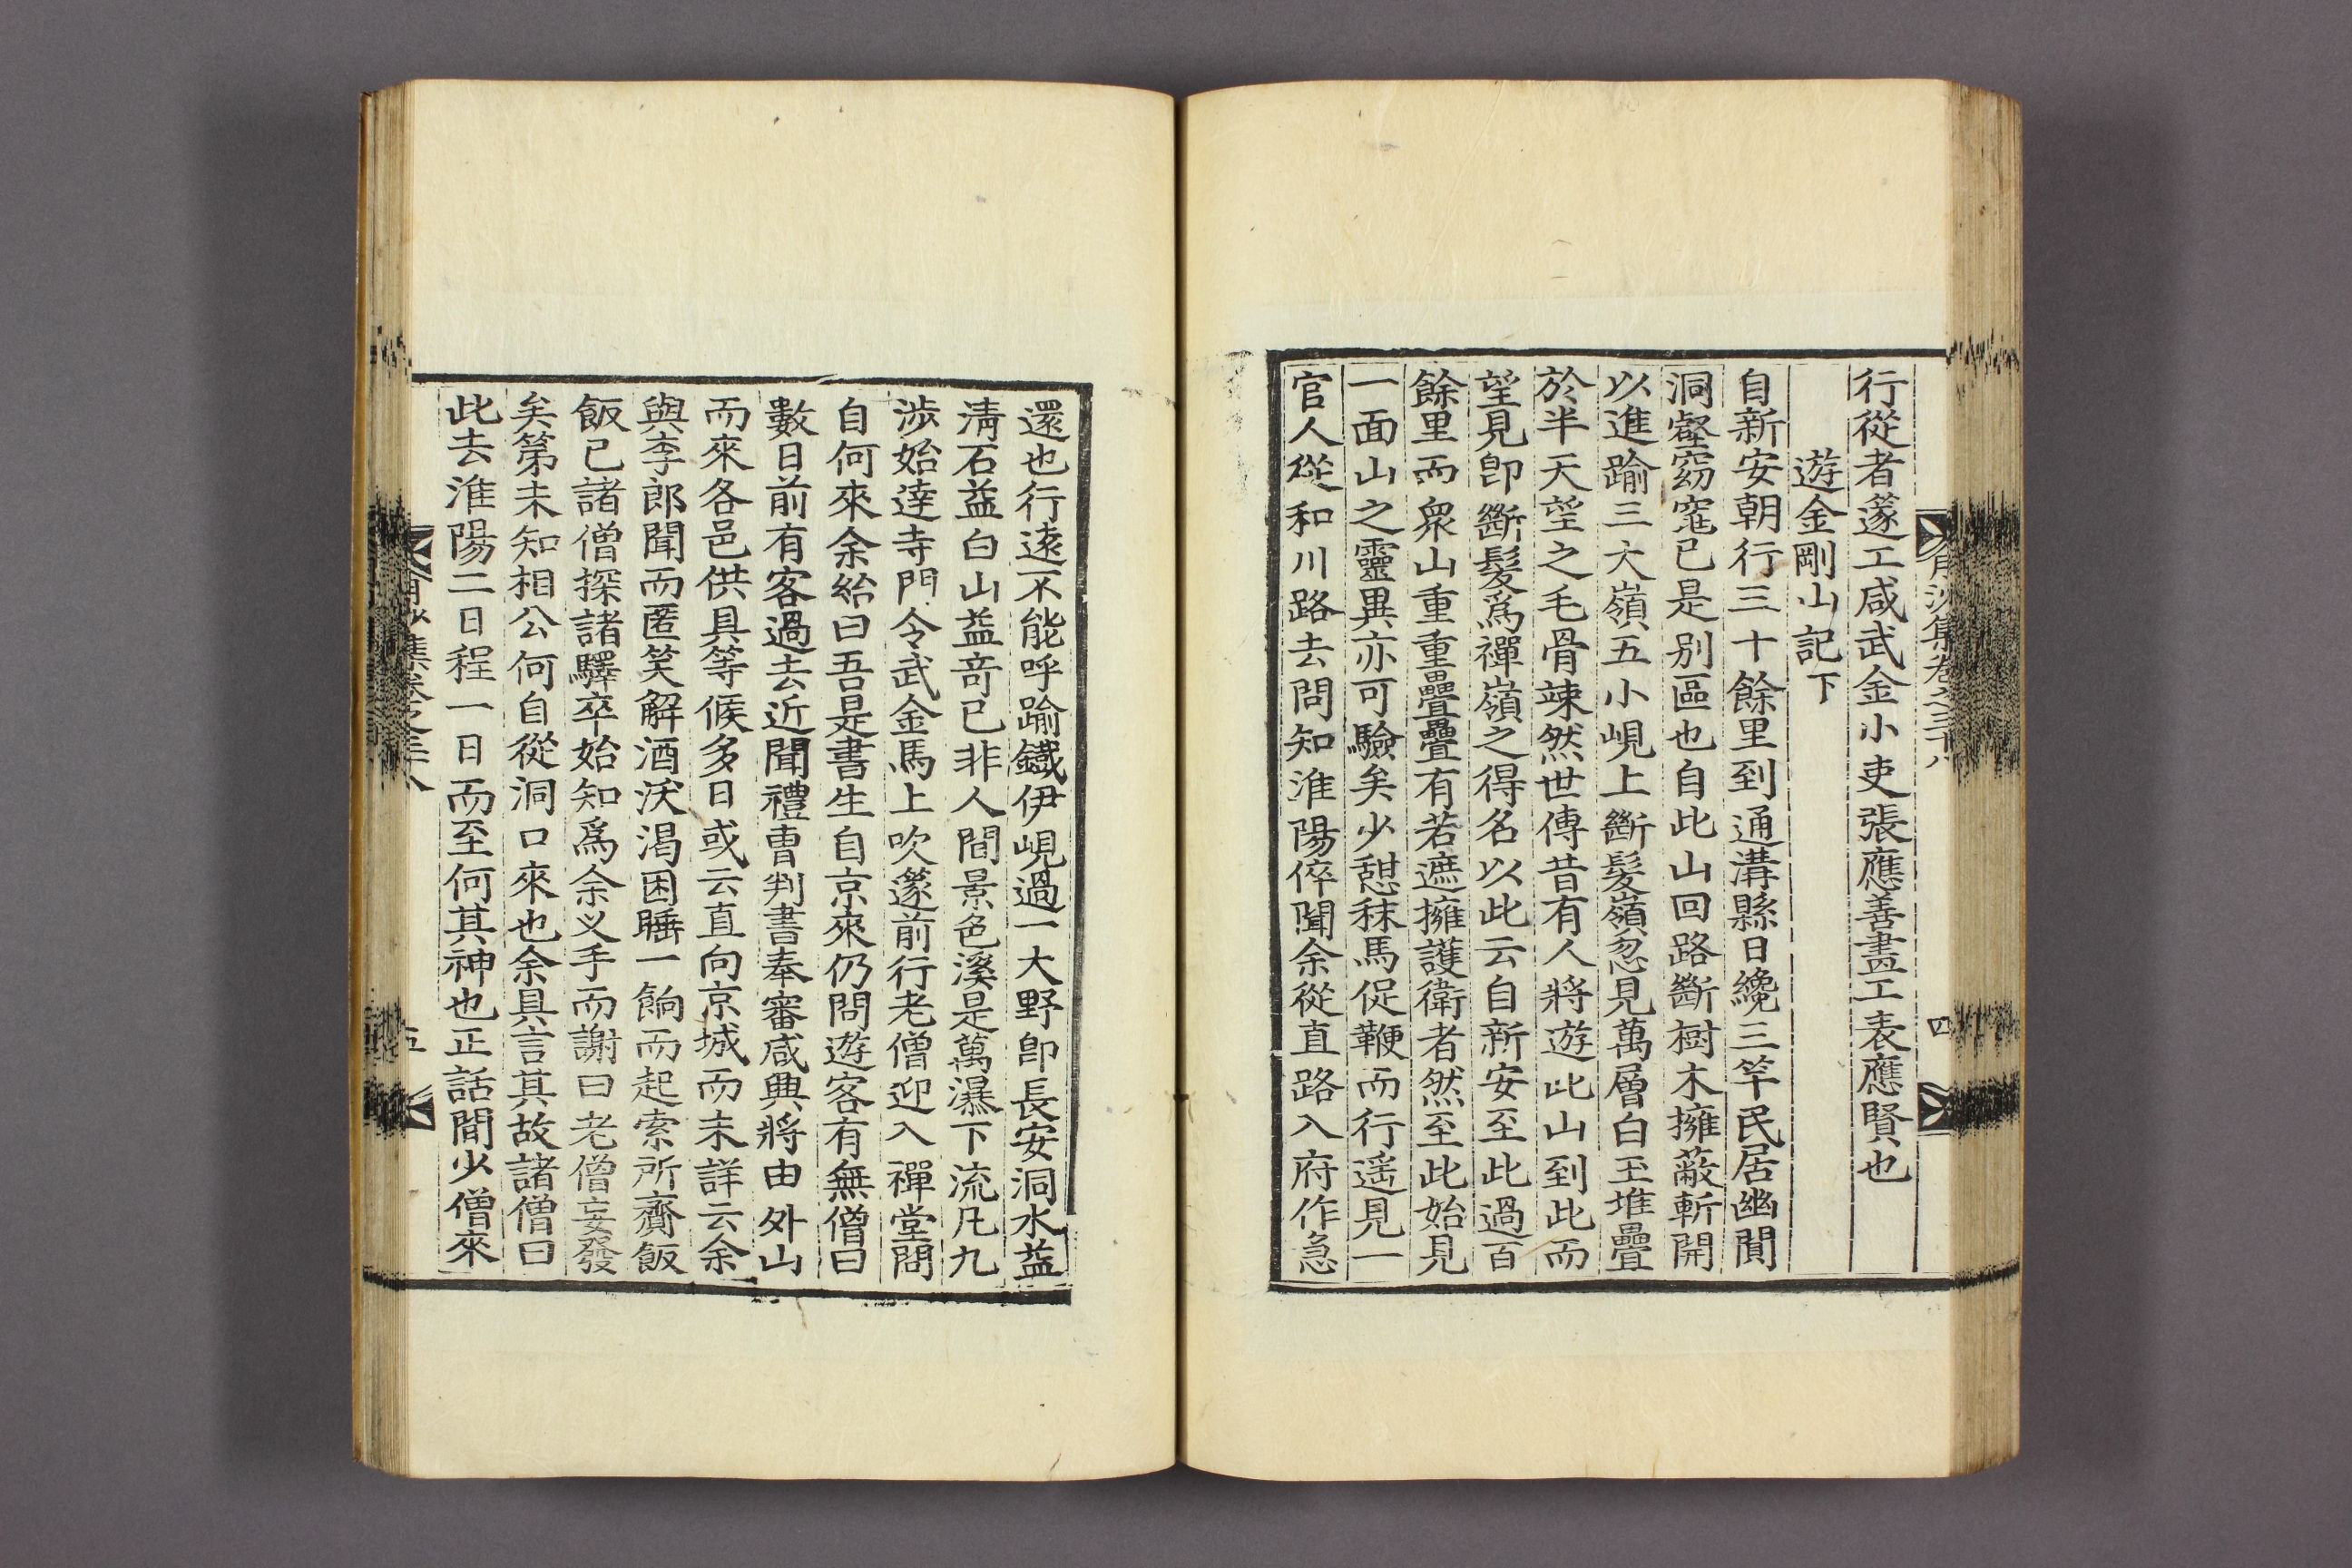 行從者籧工咸武金小吏張應善畫工表應賢也
遊金剛山記下
自新安朝行三十餘里到通溝縣日纔三竿民居幽閴
洞壑窈窕已是別區也自此山回路斷樹木擁蔽斬開
以進踰三大嶺五小峴上斷髮嶺忽見萬層白玉堆疊
於半天望之毛骨竦然世傳昔有人將遊此山到此而
望見卽斷髮爲禪嶺之得名以此云自新安至此過百
餘里而衆山重重疊疊有若遮擁護衛者然至此始見
一面山之靈異亦可驗矣少憇秣馬促鞭而行遥見一
官人從和川路去問知淮陽倅聞余從直路入府作急
還也行遠不能呼踰鐵伊峴過一大野卽長安洞水益
淸石益白山益竒已非人間景色溪是萬瀑下流凡九
涉始達寺門令武金馬上吹籧前行老僧迎入禪堂問
自何來余紿曰吾是書生自京來仍問遊客有無僧曰
數日前有客過去近聞禮曹判書奉審咸興將由外山
而來各邑供具等候多日或云直向京城而未詳云余
與李郎聞而匿笑解酒沃渴困睡一餉而起索所齎飯
飯已諸僧探諸驛卒始知爲余叉手而謝曰老僧妄發
矣第未知相公何自從洞口來也余具言其故諸僧曰
此去淮陽二日程一日而至何其神也正話間少僧來
月沙集卷之三十八
四
五